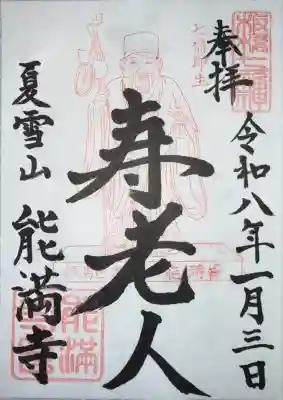 奉拝
令和八年一月三日
寿老人
夏雪山 能満寺
能満